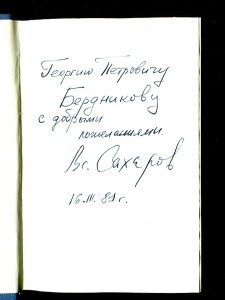 Георгию Петровичу
Бердникову
с добрыми
пожеланиями.
Вс. Сахаров
16.III.81 г.